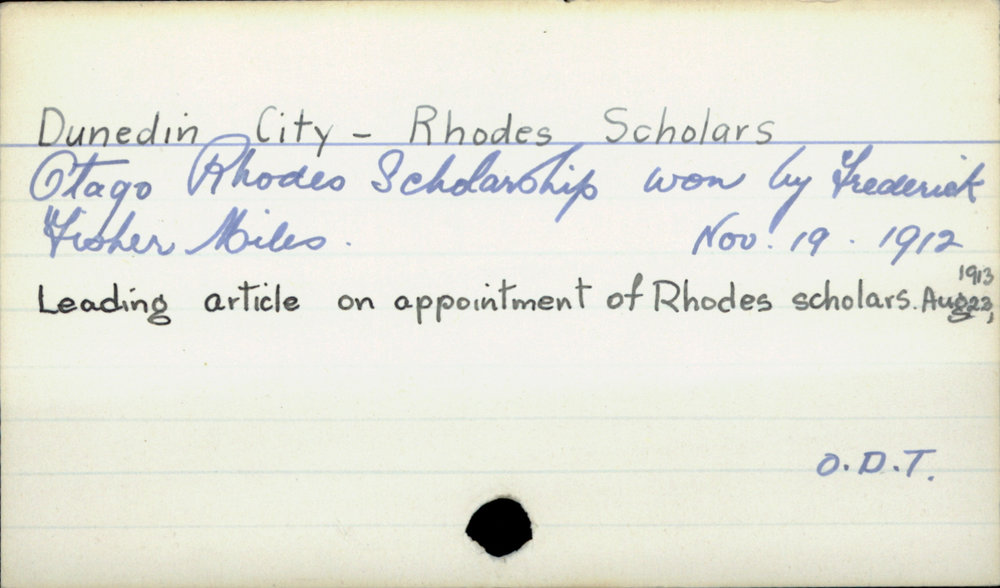 Dunedin City - Rhodes Scholars
Otago Rhodes Scholarship won by Frederick
Fisher Miles. Nov. 19. 1912
Leading article on appointment of Rhodes scholars. Aug 23, 1913
O.D.T.